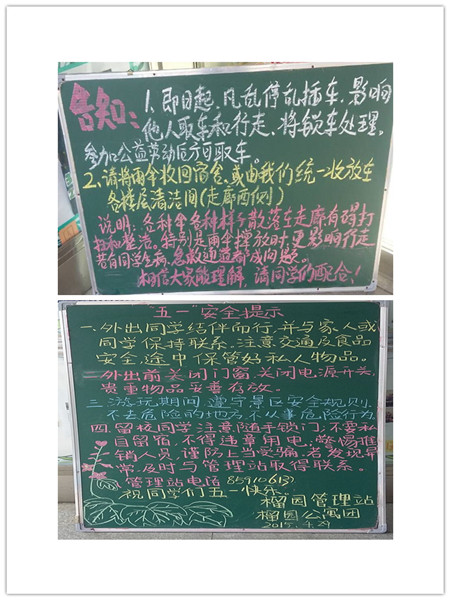 告知:
1、即日起,凡乱停乱插车,影响
他人取车和行走,将锁车处理,
参加公益劳动后方可取车。
2、请将雨伞收回宿舍,或由我们统一收放在
各楼层清洁间(走廊西侧)
说明:各种伞各种样子散落在走廊有碍打
扫和整洁,特别是雨伞撑放时,更影响行走
若有同学生病,急救通道都成问题。
相信大家能理解,请同学们配合!
五一"安全提示
一、外出同学结伴而行,并与家人或
同学保持联系。注意交通及食品
安全,途中保管好私人物品。
二、外出前关闭门窗,关闭电源开关,
贵重物品妥善存放。
三、游玩期间,遵守景区安全规则,
不去危险的地方,不从事危险行为
四、留校同学注意随手锁门,不要私
自留宿,不得违章用电,警惕推
销人员,谨防上当受骗,若发现异
常,及时与管理站取得联系。
管理站电话
祝同学们五一快乐
榴园管理站
榴园公寓团
2015.4.29